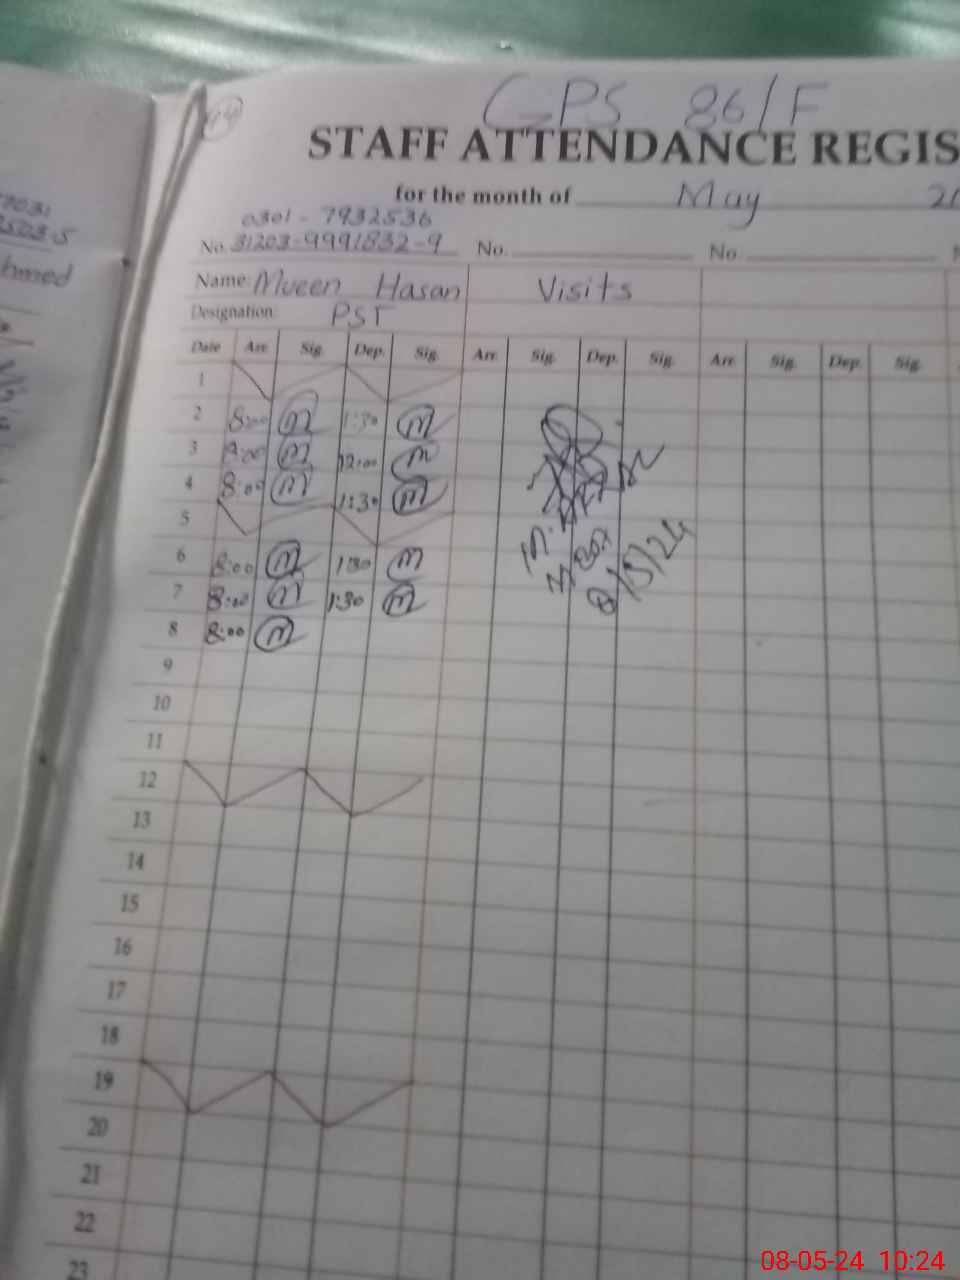 GPS 86/F
STAFF ATTENDANCE REGIS
for the month of May 20
0301-7932536
No. 31203-9991832-9 No. No.
Name: Mueen Hasan Visits
Designation: PST
Date Arr. Sig. Dep. Sig. Arr. Sig. Dep. Sig. Arr. Sig. Dep. Sig.
1
2 8:00 m 1:30 m
3 8:00 m 12:00 m
4 8:00 m 1:30 m
5
6 8:00 m 1:30 m
7 8:00 m 1:30 m
8 8:00 m
8/5/24
9
10
11
12
13
14
15
16
17
18
19
20
21
22
23
08-05-24 10:24